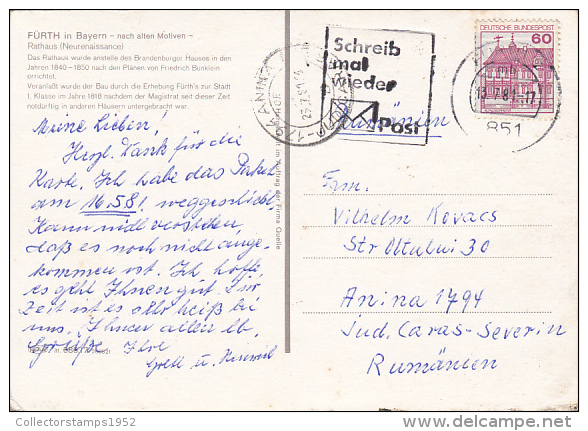 FÜRTH in Bayern – nach alten Motiven –
Rathaus (Neurenaissance)
Das Rathaus wurde anstelle des Brandenburger Hauses in den
Jahren 1840–1850 nach den Plänen von Friedrich Bürklein
errichtet.
Veranlaßt wurde der Bau durch die Erhebung Fürth's zur Stadt
I. Klasse im Jahre 1818 nachdem der Magistrat seit dieser Zeit
notdürftig in anderen Häusern untergebracht war.
Meine Lieben!
Herzl. Dank für die
Karte. Ich habe das Paket
am 16.5.81 weggeschickt.
Kann nicht verstehen,
daß es noch nicht ange-
kommen ist. Ich hoffe,
es geht Ihnen gut. Zur
Zeit ist es sehr heiß bei
uns. Ihnen allen lb.
Grüße Ihre
Gretl u.
im Auftrag der Firma Quelle
Schreib
mal
wieder
Post
DEUTSCHE BUNDESPOST
60
13.7.81-17
851
Rumänien
Fam.
Vilhelm Kovacs
Str Oltului 30
Anina 1794
Jud. Caras-Severin
Rumänien
Collectorstamps1952
delcampe.net